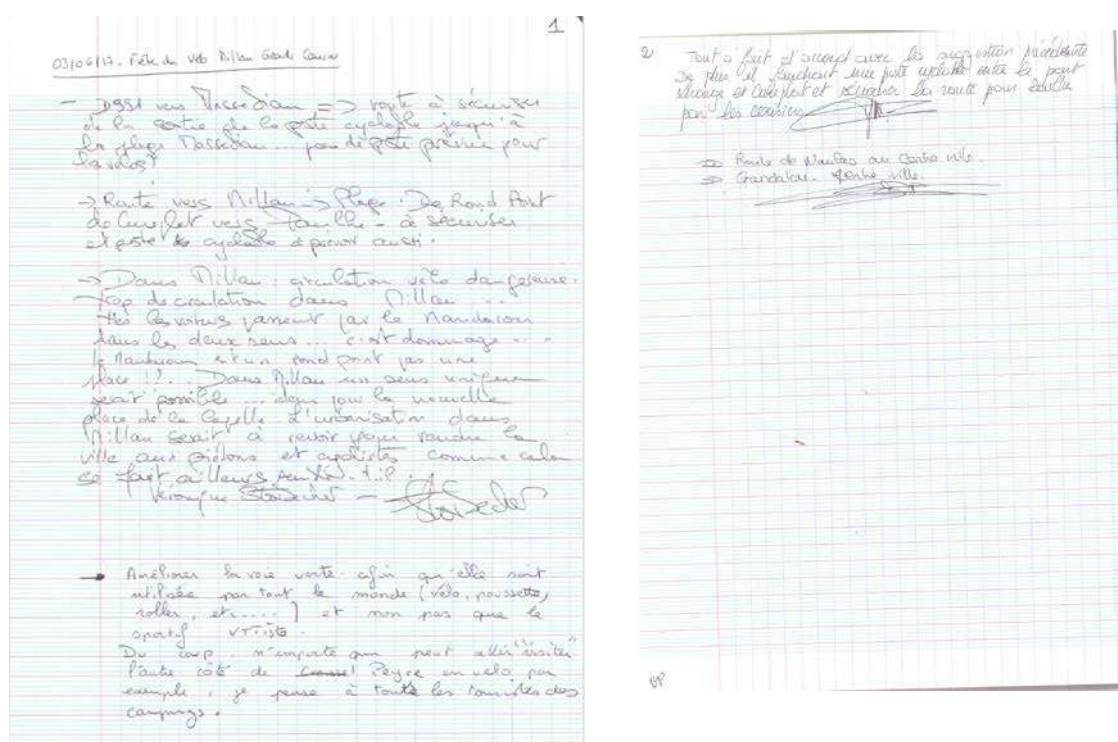 1
03/06/17. Fête du Vélo Millau Grands Causses
- D991 vers Massebiau => route à sécuriser
de la sortie de la piste cyclable jusqu'à
la plage Massebiau... pas de piste prévue pour
les vélos!
-> Route vers Millau -> Plage. De Rond Point
de Cureplat vers Paulhe - à sécuriser
et piste cyclable à prévoir aussi.
-> Dans Millau: circulation vélo dangereuse.
Trop de circulation dans Millau...
les voitures passent par le Mandarous
dans les deux sens... c'est dommage...
le Mandarous est un rond point pas une
place!!?.. Dans Millau un sens unique
serait possible... idem pour la nouvelle
place de la Capelle. L'urbanisation dans
Millau serait à revoir pour rendre la
ville aux piétons et cyclistes comme cela
se fait ailleurs
Véronique
-> Améliorer la voie verte afin qu'elle soit
utilisée par tout le monde (vélo, poussette,
roller, et.....) et non pas que le
sportif VTTiste.
Du coup n'importe qui peut aller "visiter"
l'autre côté de Peyre en vélo par
exemple, je pense à toute les touristes des
campings.
2
Tout à fait d'accord avec la suggestion précédente
De plus il faudrait une piste cyclable entre le pont
et Cureplat et sécuriser la route pour Paulhe
pour les cerisiers
=> Route de Nantes au Centre ville.
=> centre ville.